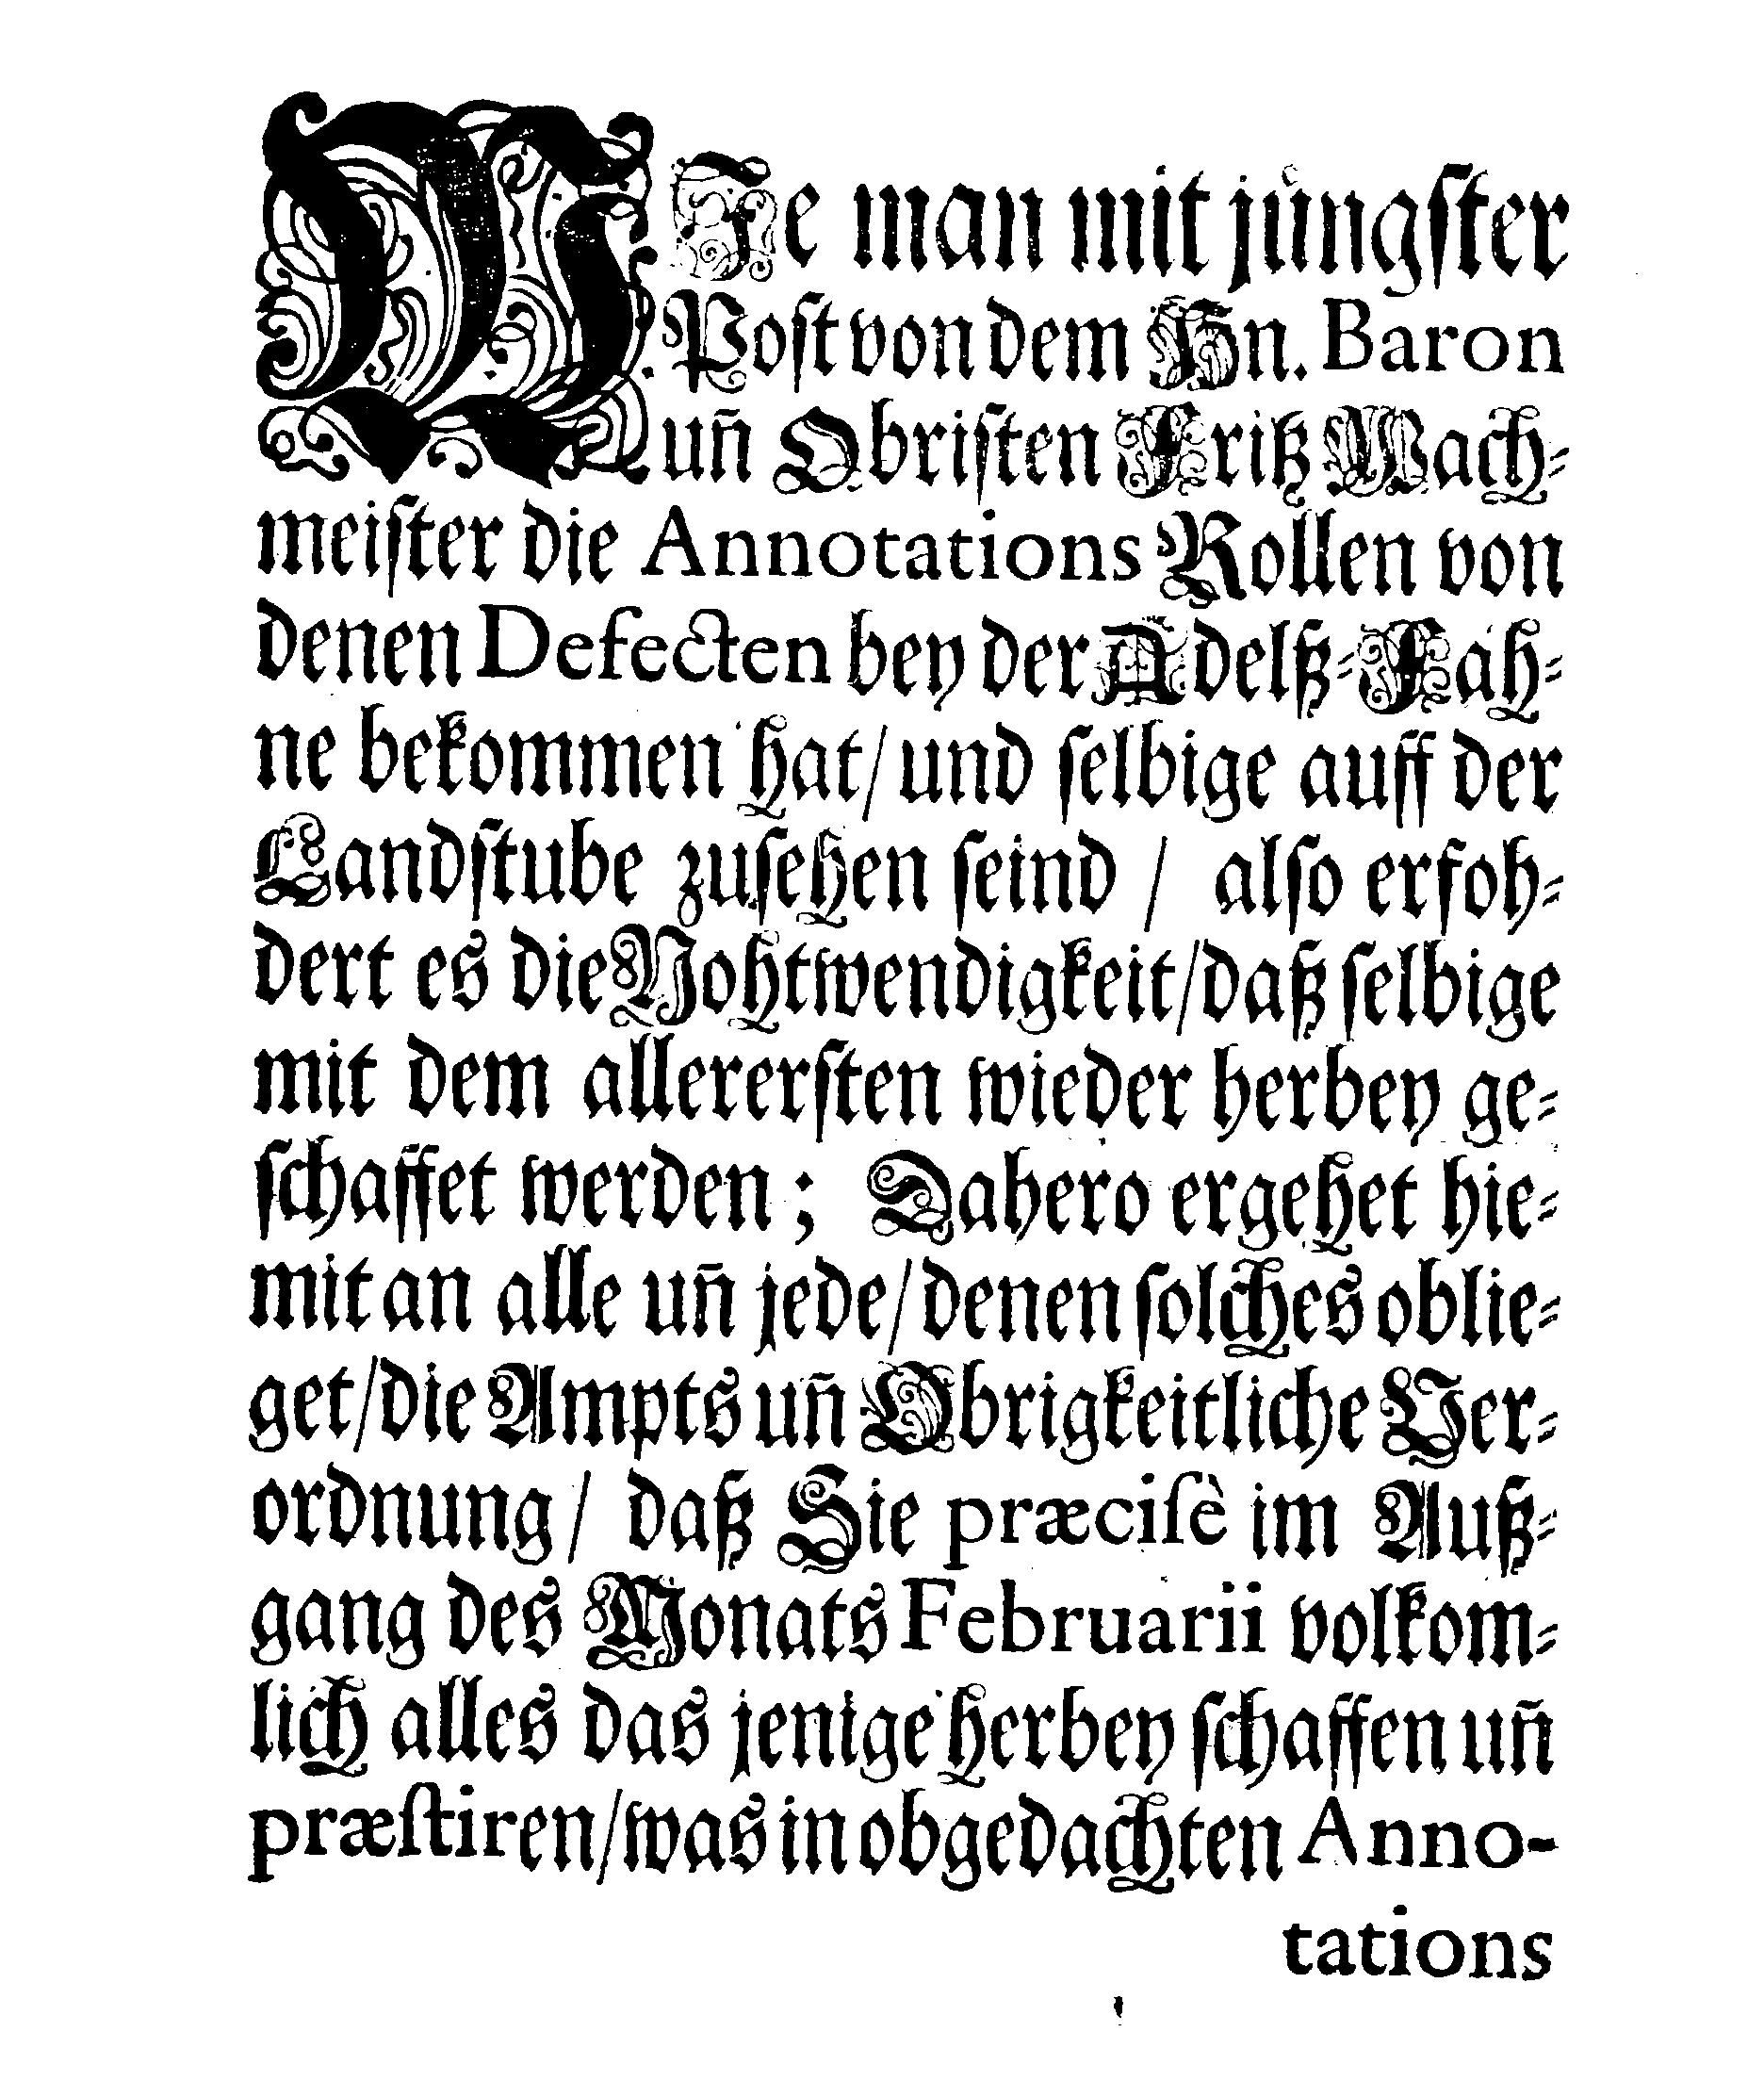 WIe man mit jüngster
Post von dem Hn. Baron
uñ Obristen Fritz Wach⸗
meister die Annotations Rollen von
denen Defecten bey der Adelß⸗Fah⸗
ne bekommen hat/ und selbige auff der
Landstube zusehen seind / also erfoh⸗
dert es die Nohtwendigkeit/ daß selbige
mit dem allerersten wieder herbey ge⸗
schaffet werden; Dahero ergehet hie⸗
mit an alle uñ jede/ denen solches oblie⸗
get/ die Ampts uñ Obrigkeitliche Ver⸗
ordnung/ daß Sie præcisè im Auß⸗
gang des Monats Februarii volkom⸗
lich alles das jenige herbey schaffen uñ
præstiren/ was in obgedachten Anno-
tations